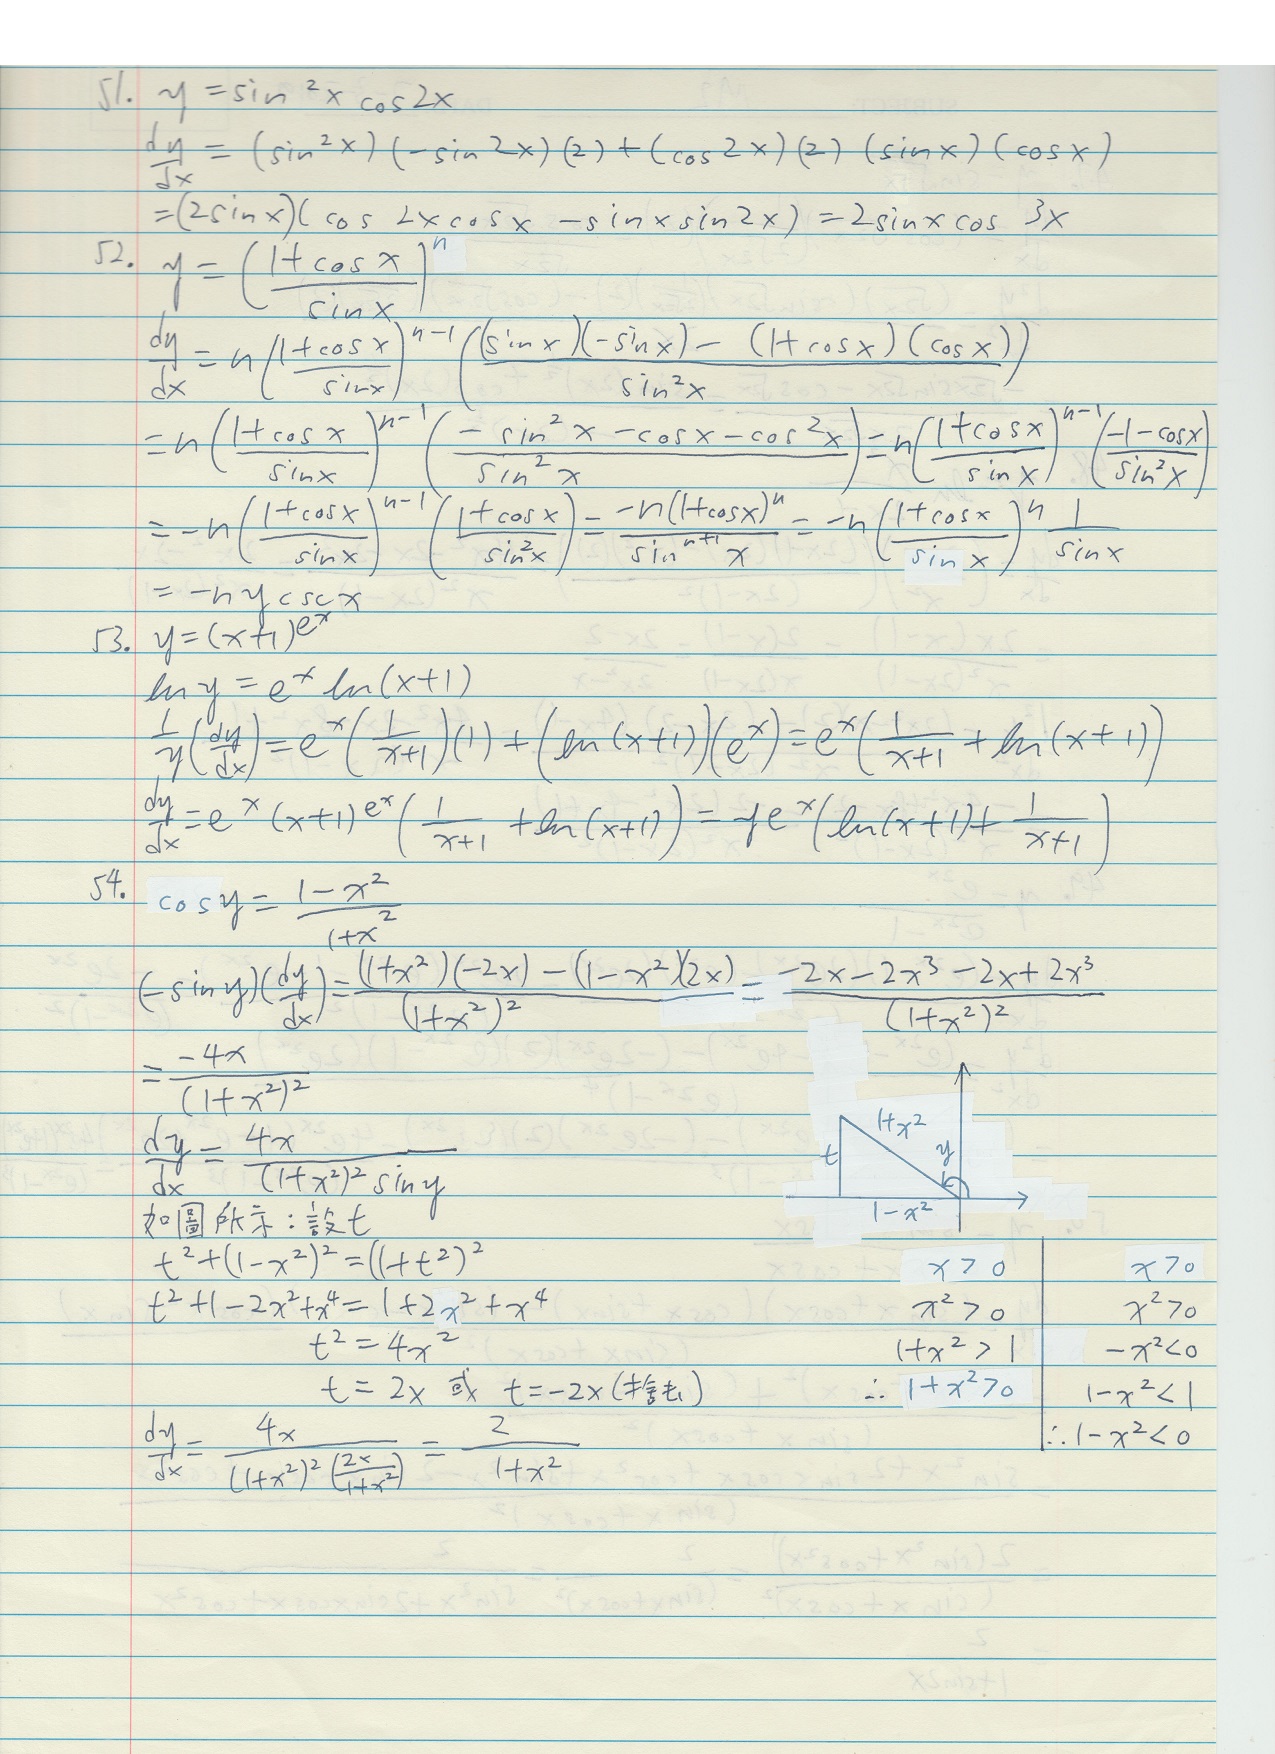 51. y = sin²x cos2x
dy/dx = (sin²x)(-sin2x)(2)+(cos2x)(2)(sinx)(cosx)
=(2sinx)(cos2xcosx -sinxsin2x) = 2sinxcos 3x
52. y = ((1+cosx)/sinx)^n
dy/dx = n((1+cosx)/sinx)^(n-1) (((sinx)(-sinx) - (1+cosx)(cosx))/sin²x)
= n((1+cosx)/sinx)^(n-1) ((-sin²x-cosx-cos²x)/sin²x) = n((1+cosx)/sinx)^(n-1) ((-1-cosx)/sin²x)
= -n((1+cosx)/sinx)^(n-1) ((1+cosx)/sin²x) = -n(1+cosx)^n/sin^(n+1)x = -n((1+cosx)/sinx)^n 1/sinx
= -nycscx
53. y=(x+1)^e^x
lny = e^x ln(x+1)
1/y(dy/dx) = e^x(1/(x+1))(1)+(ln(x+1))(e^x) = e^x(1/(x+1) + ln(x+1))
dy/dx = e^x(x+1)^e^x(1/(x+1) + ln(x+1)) = ye^x(ln(x+1)+1/(x+1))
54. cosy = (1-x²)/(1+x²)
(-siny)(dy/dx) = ((1+x²)(-2x)-(1-x²)(2x))/(1+x²)² = (-2x-2x³-2x+2x³)/(1+x²)²
= -4x/(1+x²)²
dy/dx = 4x/((1+x²)²siny)
如圖所示:設t
t²+(1-x²)²=(1+t²)²
t²+1-2x²+x⁴=1+2x²+x⁴
t²=4x²
t=2x 或 t=-2x(捨去)
dy/dx = 4x/((1+x²)²(2x/(1+x²))) = 2/(1+x²)
1+x²
t
y
1-x²
x>0
x²>0
1+x²>1
∴1+x²>0
x>0
x²>0
-x²<0
1-x²<1
∴1-x²<0